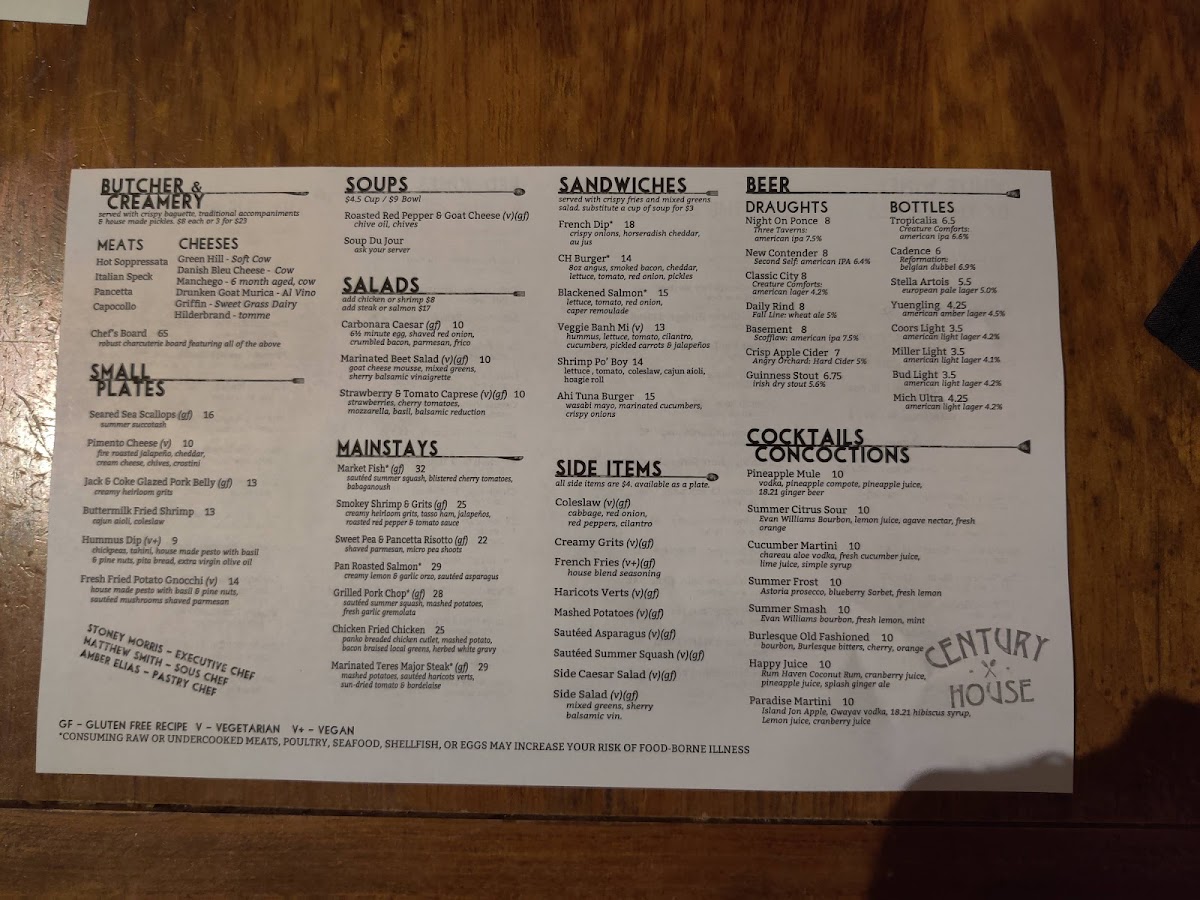 BUTCHER &
CREAMERY
served with crispy baguette, traditional accompaniments
& house made pickles. $8 each or 3 for $23
MEATS
Hot Soppressata
Italian Speck
Pancetta
Capocollo
CHEESES
Green Hill - Soft Cow
Danish Bleu Cheese - Cow
Manchego - 6 month aged, cow
Drunken Goat Murica - Al Vino
Griffin - Sweet Grass Dairy
Hilderbrand - tomme
Chef's Board 65
robust charcuterie board featuring all of the above
SMALL
PLATES
Seared Sea Scallops (gf) 16
summer succotash
Pimento Cheese (v) 10
fire roasted jalapeño, cheddar,
cream cheese, chives, crostini
Jack & Coke Glazed Pork Belly (gf) 13
creamy heirloom grits
Buttermilk Fried Shrimp 13
cajun aioli, coleslaw
Hummus Dip (v+) 9
chickpeas, tahini, house made pesto with basil
& pine nuts, pita bread, extra virgin olive oil
Fresh Fried Potato Gnocchi (v) 14
house made pesto with basil & pine nuts,
sautéed mushrooms shaved parmesan
STONEY MORRIS - EXECUTIVE CHEF
MATTHEW SMITH - SOUS CHEF
AMBER ELIAS - PASTRY CHEF
SOUPS
$4.5 Cup / $9 Bowl
Roasted Red Pepper & Goat Cheese (v)(gf)
chive oil, chives
Soup Du Jour
ask your server
SALADS
add chicken or shrimp $8
add steak or salmon $17
Carbonara Caesar (gf) 10
6½ minute egg, shaved red onion,
crumbled bacon, parmesan, frico
Marinated Beet Salad (v)(gf) 10
goat cheese mousse, mixed greens,
sherry balsamic vinaigrette
Strawberry & Tomato Caprese (v)(gf) 10
strawberries, cherry tomatoes,
mozzarella, basil, balsamic reduction
MAINSTAYS
Market Fish* (gf) 32
sautéed summer squash, blistered cherry tomatoes,
babaganoush
Smokey Shrimp & Grits (gf) 25
creamy heirloom grits, tasso ham, jalapeños,
roasted red pepper & tomato sauce
Sweet Pea & Pancetta Risotto (gf) 22
shaved parmesan, micro pea shoots
Pan Roasted Salmon* 29
creamy lemon & garlic orzo, sautéed asparagus
Grilled Pork Chop* (gf) 28
sautéed summer squash, mashed potatoes,
fresh garlic gremolata
Chicken Fried Chicken 25
panko breaded chicken cutlet, mashed potato,
bacon braised local greens, herbed white gravy
Marinated Teres Major Steak* (gf) 29
mashed potatoes, sautéed haricots verts,
sun-dried tomato & bordelaise
SANDWICHES
served with crispy fries and mixed greens
salad, substitute a cup of soup for $3
French Dip* 18
crispy onions, horseradish cheddar,
au jus
CH Burger* 14
8oz angus, smoked bacon, cheddar,
lettuce, tomato, red onion, pickles
Blackened Salmon* 15
lettuce, tomato, red onion,
caper remoulade
Veggie Banh Mi (v) 13
hummus, lettuce, tomato, cilantro,
cucumbers, pickled carrots & jalapeños
Shrimp Po' Boy 14
lettuce, tomato, coleslaw, cajun aioli,
hoagie roll
Ahi Tuna Burger 15
wasabi mayo, marinated cucumbers,
crispy onions
SIDE ITEMS
all side items are $4. available as a plate.
Coleslaw (v)(gf)
cabbage, red onion,
red peppers, cilantro
Creamy Grits (v)(gf)
French Fries (v+)(gf)
house blend seasoning
Haricots Verts (v)(gf)
Mashed Potatoes (v)(gf)
Sautéed Asparagus (v)(gf)
Sautéed Summer Squash (v)(gf)
Side Caesar Salad (v)(gf)
Side Salad (v)(gf)
mixed greens, sherry
balsamic vin.
BEER
DRAUGHTS
Night On Ponce 8
Three Taverns:
american ipa 7.5%
New Contender 8
Second Self: american IPA 6.4%
Classic City 8
Creature Comforts:
american lager 4.2%
Daily Rind 8
Fall Line: wheat ale 5%
Basement 8
Scofflaw: american ipa 7.5%
Crisp Apple Cider 7
Angry Orchard: Hard Cider 5%
Guinness Stout 6.75
irish dry stout 5.6%
BOTTLES
Tropicalia 6.5
Creature Comforts:
american ipa 6.6%
Cadence 6
Reformation:
belgian dubbel 6.9%
Stella Artois 5.5
european pale lager 5.0%
Yuengling 4.25
american amber lager 4.5%
Coors Light 3.5
american light lager 4.2%
Miller Light 3.5
american light lager 4.1%
Bud Light 3.5
american light lager 4.2%
Mich Ultra 4.25
american light lager 4.2%
COCKTAILS
CONCOCTIONS
Pineapple Mule 10
vodka, pineapple compote, pineapple juice,
18.21 ginger beer
Summer Citrus Sour 10
Evan Williams Bourbon, lemon juice, agave nectar, fresh
orange
Cucumber Martini 10
chareau aloe vodka, fresh cucumber juice,
lime juice, simple syrup
Summer Frost 10
Astoria prosecco, blueberry Sorbet, fresh lemon
Summer Smash 10
Evan Williams bourbon, fresh lemon, mint
Burlesque Old Fashioned 10
bourbon, Burlesque bitters, cherry, orange
Happy Juice 10
Rum Haven Coconut Rum, cranberry juice,
pineapple juice, splash ginger ale
Paradise Martini 10
Island Jon Apple, Gwayav vodka, 18.21 hibiscus syrup,
Lemon juice, cranberry juice
CENTURY
HOUSE
GF - GLUTEN FREE RECIPE V - VEGETARIAN V+ - VEGAN
*CONSUMING RAW OR UNDERCOOKED MEATS, POULTRY, SEAFOOD, SHELLFISH, OR EGGS MAY INCREASE YOUR RISK OF FOOD-BORNE ILLNESS